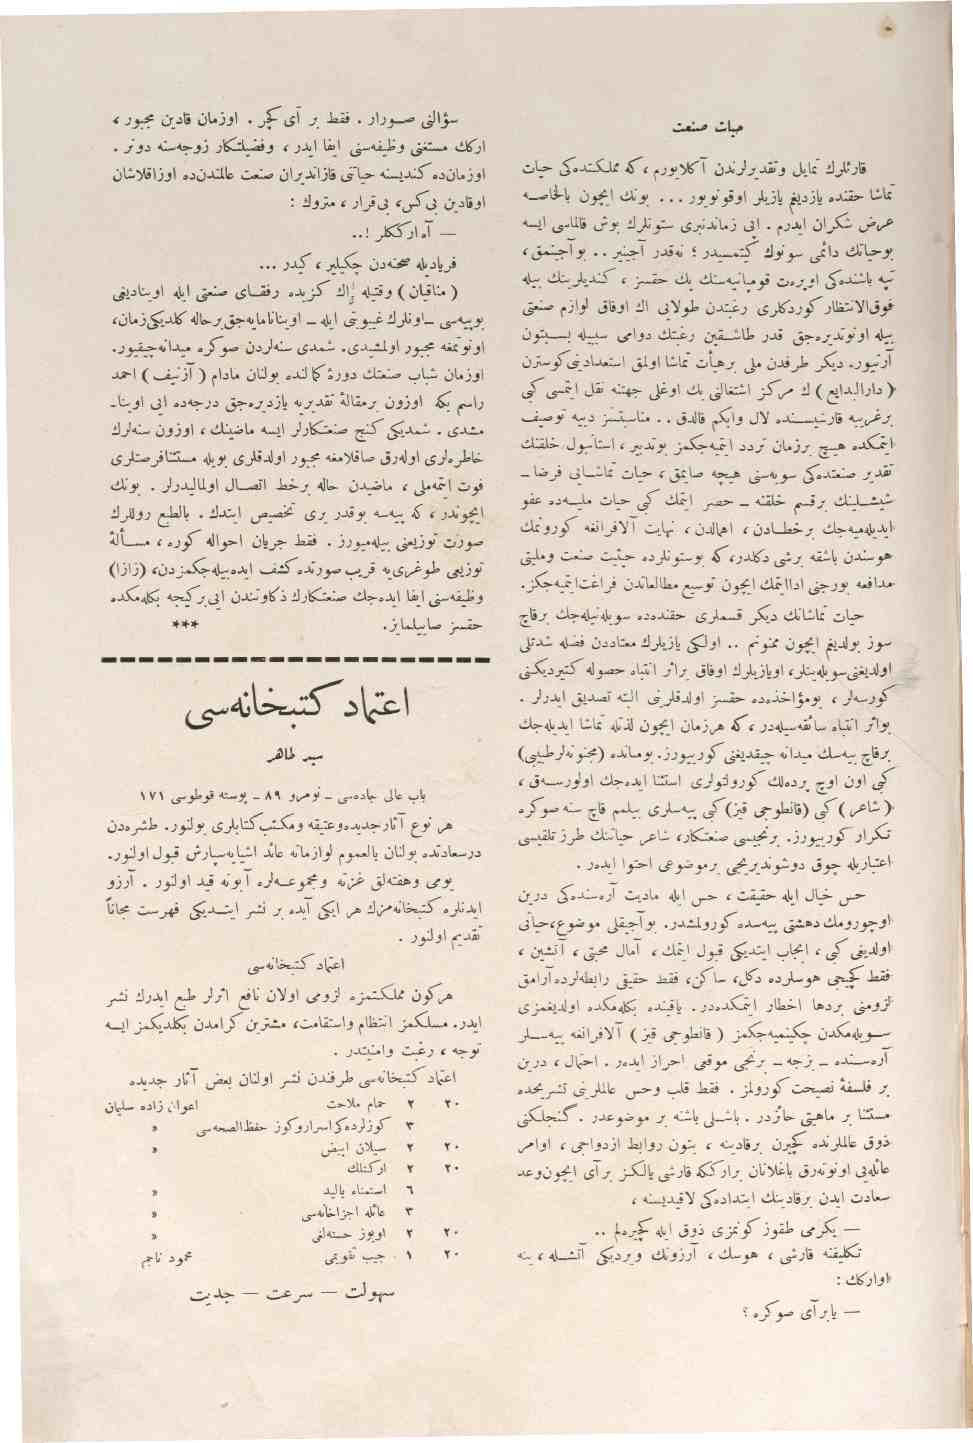 حيات صنعت
قارئلرك تمايل وتقديرلرندن آكلايورم ، كه مملكتنده‌كى حيات
تماشا حقنده يازديغم يازيلر اوقونويور ... بونك ايچون بالخاصه
عرض شكران ايدرم . ايى زماندنبرى ستونلرك بوش قالماسى ايسه
بوحياتك دائمى سونوك كيتمسيدر ؛ نه‌قدر آجينير .. بوآجينمق ،
تپه باشنده‌كى اوپره‌ت قومپانيه‌سنك پك حقسز ، كنديلرينك بيله
فوق‌الانتظار كوردكلرى رغبتدن طولايى اك اوفاق لوازم صنعتى
بيله اونوتديره‌جق قدر طاشقين رغبتك دوامى سببيله بسبتون
آرتيور. ديكر طرفدن ملى برهيأت تماشا اولمق استعدادينى كوسترن
( دارالبدايع ) ك مركز اشتغالنى بك اوغلى جهتنه نقل ايتمسى كبى
برغريبه قارشيسنده لال وابكم قالدق .. مناسبتسز دييه توصيف
ايتمكده هيچ برزمان تردد ايتميه‌جكمز بوتدبير ، استانبول خلقنك
تقدير صنعتده‌كى سويه‌سنى هيچه صايمق ، حيات تماشايى فرضا ـ
شيشلينك برقسم خلقنه ـ حصر ايتمك كبى حيات مليه‌ده عفو
ايديله‌ميه‌جك برخطادن ، اهمالدن ، نهايت آلافرانغه كورونمك
هوسندن باشقه برشى دكلدر، كه بوستونلرده حيثيت صنعت ومليتى
مدافعه بورجنى اداايتمك ايچون توسيع مطالعاندن فراغت‌ايتميه‌جكز.
حيات تماشانك ديكر قسملرى حقنده‌ده سويله‌نيله‌جك برقاچ
سوز بولديغم ايچون ممنونم .. اولكى يازيلرك معتاددن فضله شدتلى
اولديغنى‌سويله‌ينلر، اويازيلرك اوفاق براثر انتباه حصوله كتيرديكنى
كورسه‌لر ، بومؤاخذه‌ده حقسز اولدقلرينى البته تصديق ايدرلر .
بواثر انتباه سائقه‌سيله‌در ، كه هرزمان ايچون لذتله تماشا ايديله‌جك
برقاچ پيه‌سك ميدانه چيقديغنى كورييورز. بوميانده (مجنونه‌لرطبيبى)
كبى اون اوچ پرده‌لك كورولتولرى استثنا ايده‌جك اولورسه‌ق ،
( شاعر ) كبى (قانطوجى قيز) كبى پيه‌سلرى بيلمم قاچ سنه صوكره
تكرار كورييورز. برنجيسى صنعتكار، شاعر حياتنك طرز تلقيسى
اعتباريله چوق دوشونديريجى برموضوعى احتوا ايده‌ر .
حس خيال ايله حقيقت ، حس ايله ماديت آره‌سنده‌كى درين
اوچورومك دهشتى پيه‌سده كورولمشدر. بوآجيقلى موضوع، حياتى
اولديغى كبى ، ايجاب ايتديكى قبول ايتمك ، آمال محبتى ، آتشين ،
فقط كچيجى هوسلرده دكل، ساكن، فقط حقيقى رابطه‌لرده‌آرامق
لزومنى بردها اخطار ايتمكده‌در . ياقينده بكله‌مكده اولديغمزى
سويله‌مكدن چكينميه‌جكمز ( قانطوجى قيز ) آلافرانغه پيه‌سلر
آره‌سنده ـ بزجه ـ برنجى موقعى احراز ايده‌ر . احتمال ، درين
بر فلسفهٔ نصيحت كورولمز . فقط قلب وحس عالملرينى تشريحده
مستثنا بر ماهيتى حائزدر . باشلى باشنه بر موضوعدر . گنجلكنى
ذوق عالملرنده كچيرن برقادينه ، بتون روابط ازدواجى ، اوامر
عائله‌يى اونوتورق باغلانان برارككه قارشى يالكز بر آى ايچون‌وعد
سعادت ايدن برقادينك ابتداده‌كى لاقيديسنه ،
— يكرمى طقوز كونمزى ذوق ايله كچيره‌لم ..
تكليفنه قارشى ، هوسك ، آرزونك ويرديكى آتشله ، ينه
اواركك :
— يابر آى صوكره ؟
سؤالنى صورار . فقط بر آى كچر . اوزمان قادين مجبور ،
اركك مستغنى وظيفه‌سنى ايفا ايدر ، وفضيلتكار زوجه‌سنه دونر .
اوزمان‌ده كنديسنه حياتى قازانديران صنعت عالمندن‌ده اوزاقلاشان
اوقادين بى‌كس، بى‌قرار ، متروك :
— آه اركلكلر !..
فرياديله صحنه‌دن چكيلير ، كيدر ...
( مناقيان ) وقتيله اك كزيده رفقاى صنعتى ايله اوينايديغى
بوپيه‌سى ـ اونلرك غيبوبتى ايله ـ اوينانامايه‌جق‌برحاله كلديكى‌زمان،
اونوتمغه مجبور اولمشيدى. شمدى سنه‌لردن صوكره ميدانه‌چيقيور.
اوزمان شباب صنعتك دورهٔ كمالنده بولنان مادام ( آزنيف ) احمد
راسم بكه اوزون برمقالهٔ تقديريه يازديره‌جق درجه‌ده ايى اوينا‌ـ
مشدى . شمديكى كنج صنعتكارلر ايسه ماضينك ، اوزون سنه‌لرك
خاطره‌لرى اوله‌رق صاقلامغه مجبور اولدقلرى بويله مستثنافرصتلرى
فوت ايتمه‌ملى ، ماضيدن حاله برخط اتصال اولماليدرلر . بونك
ايچوندر ، كه پيه‌سه بوقدر برى تخصيص ايتدك . بالطبع روللرك
صورت توزيعنى بيله‌ميورز . فقط جريان احواله كوره ، مسألهٔ
توزيعى طوغرى‌يه قريب صورتده كشف ايده‌بيله‌جكمزدن، (زازا)
وظيفه‌سنى ايفا ايده‌جك صنعتكارك ذكاوتندن ايى بركيجه بكله‌مكده
حقسز صاييلمايز. ***
اعتماد كتبخانه‌سى
سيد طاهر
باب عالى جاده‌سى ـ نومرو ٨٩ ـ پوسته قوطوسى ١٧١
هر نوع آثارجديده‌وعتيقه ومكتب‌كتابلرى بولنور. طشره‌دن
درسعادتده بولنان بالعموم لوازماته عائد اشيايه‌سپارش قبول اولنور.
يومى وهفته‌لق غزته ومجموعه‌لره آبونه قيد اولنور . آرزو
ايدنلره كتبخانه‌مزك هر ايكى آيده بر نشر ايتديكى فهرست مجاناً
تقديم اولنور .
اعتماد كتبخانه‌سى
هركون مملكتمزه لزومى اولان نافع اثرلر طبع ايدرك نشر
ايدر. مسلكمز انتظام واستقامت، مشترين كرامدن بكلديكمز ايسه
توجه ، رغبت وامنيتدر .
اعتماد كتبخانه‌سى طرفندن نشر اولنان بعض آثار جديده
٢٠ ٢ حمام ملاحت اعوان زاده سليمان
٣ كوزلرده‌كى‌اسراروكوز حفظ‌الصحه‌سى »
٢٠ ٢ سيلان ابيض »
٢٠ ٢ ارككلك
٦ استمناء باليد »
٣ عائله اجزاخانه‌سى »
٢٠ ٢ اويوز خسته‌لغى »
٢٠ ١ جيب تقويمى محمود ناجم
سهولت — سرعت — جديت